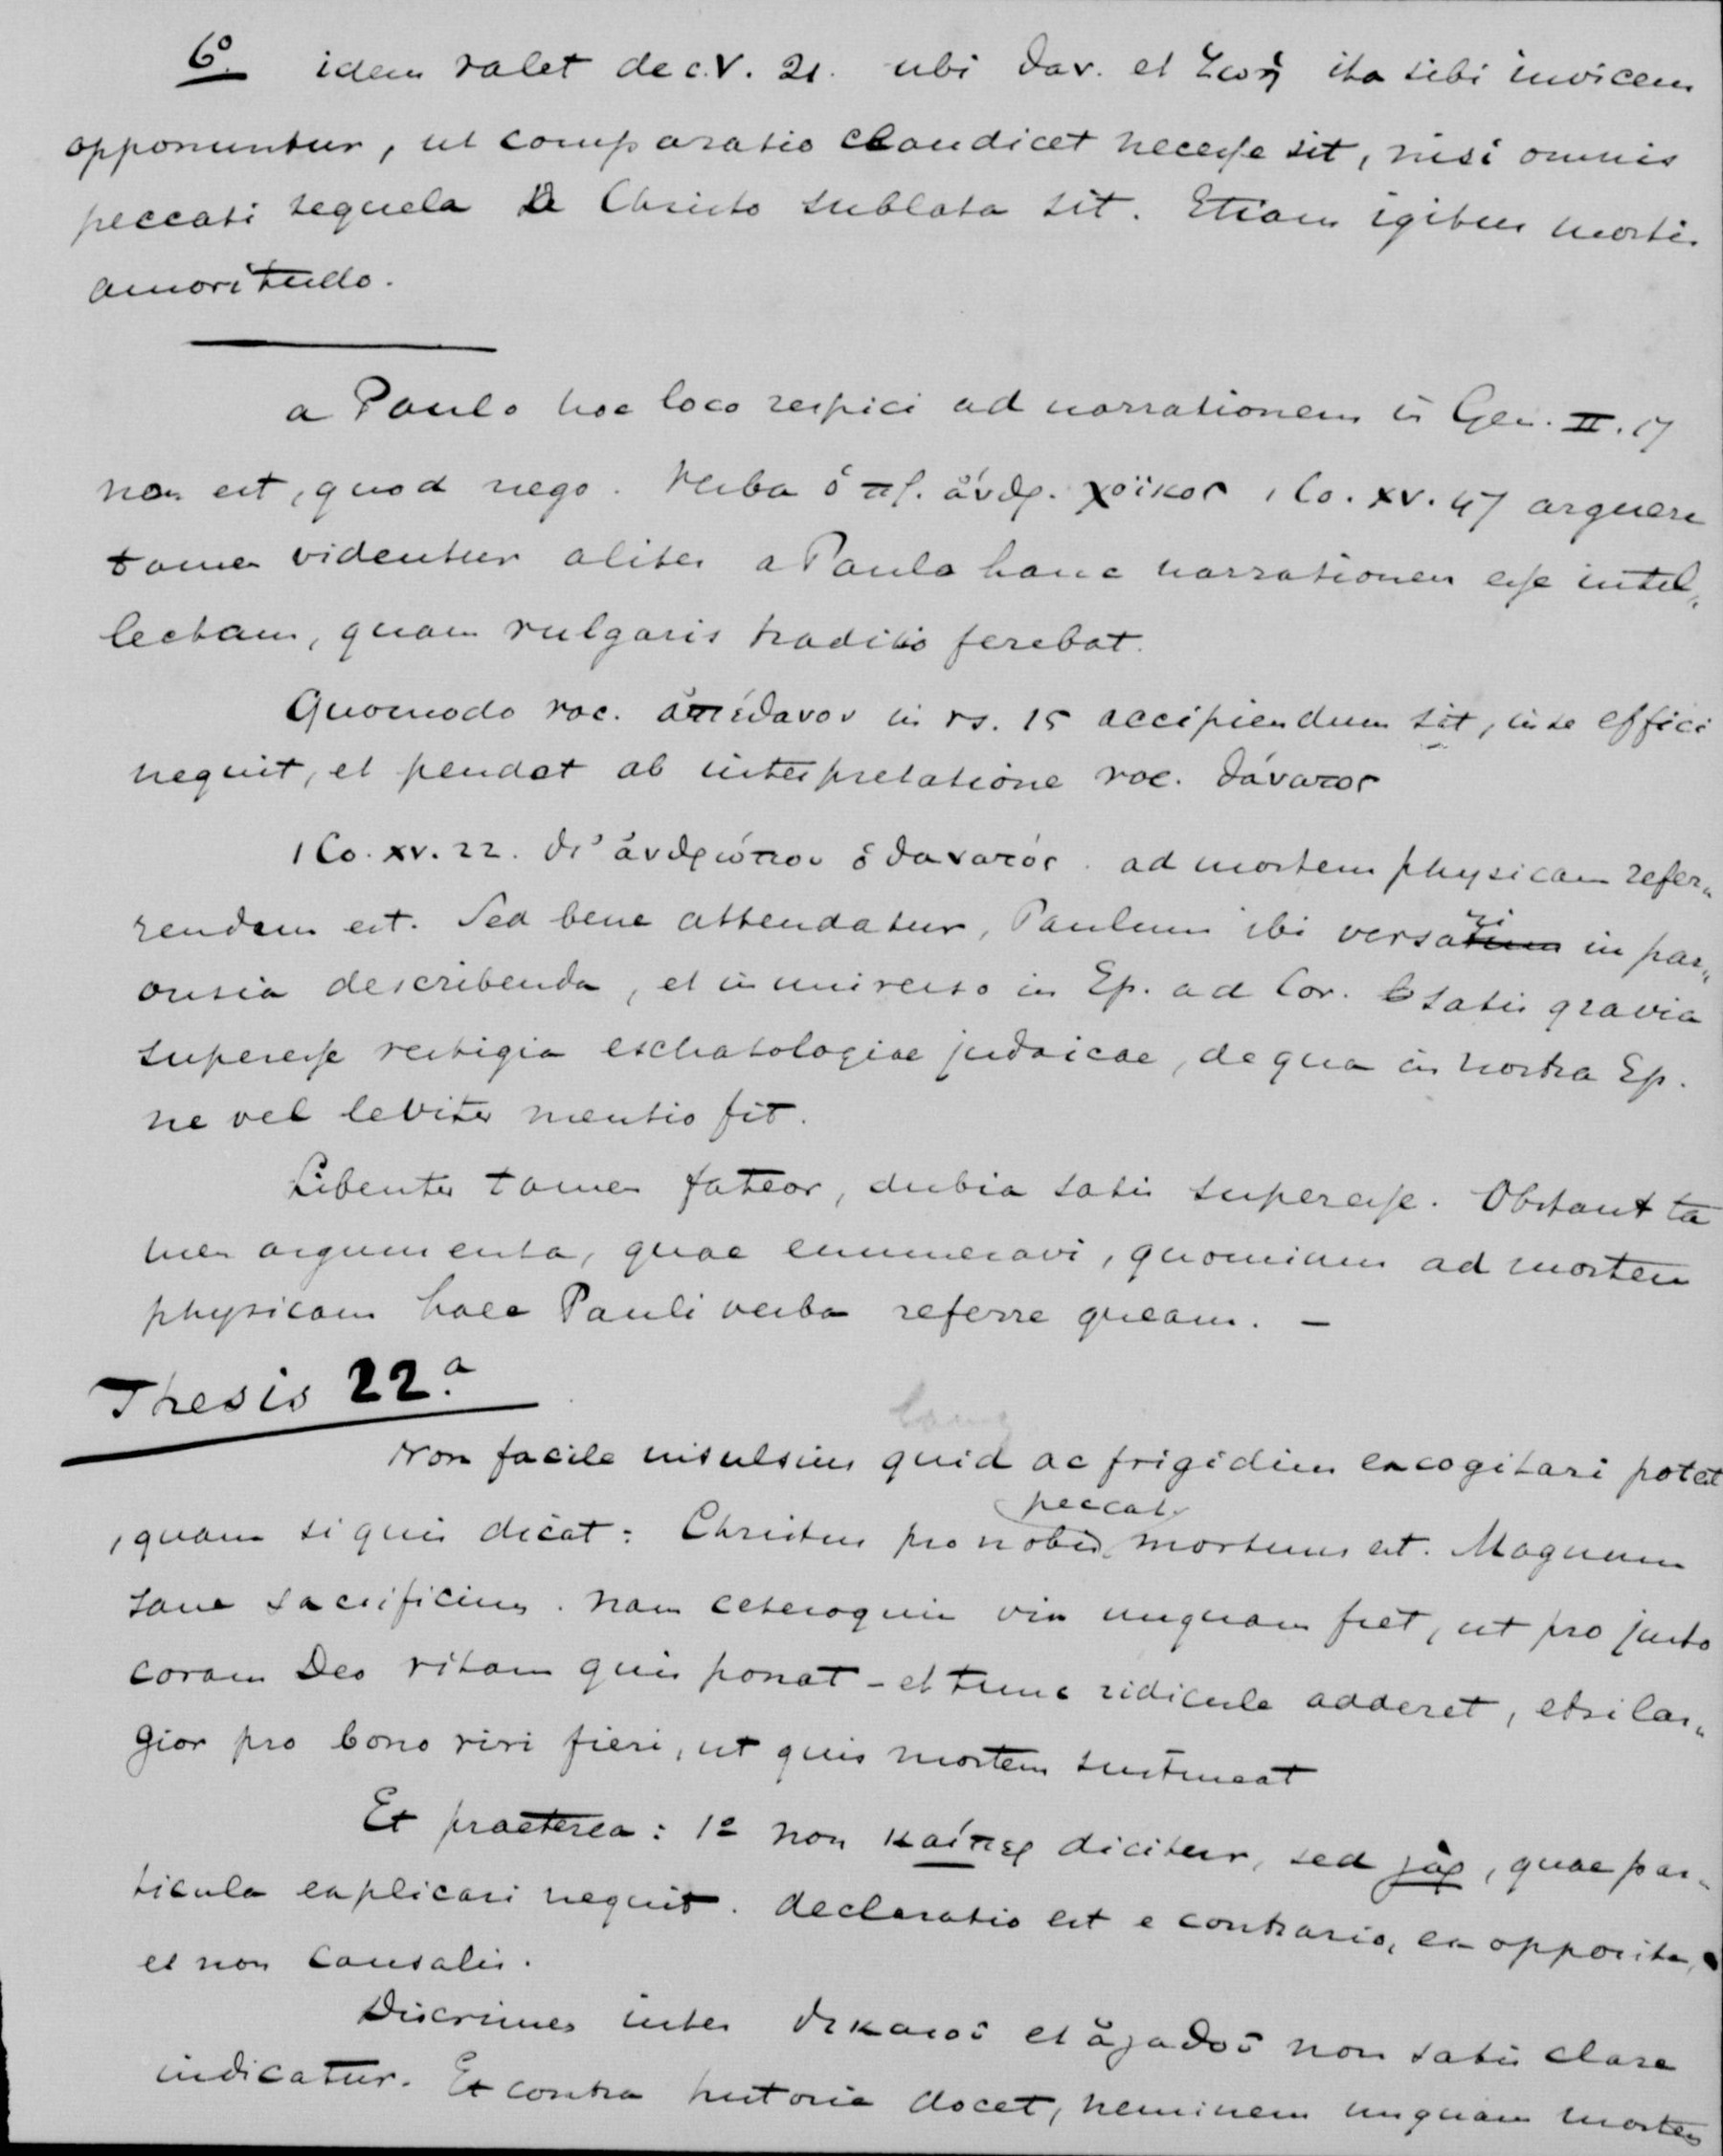 6º. idem valet de c. V. 21. ubi θαν. et ζωή ita sibi invicem
opponuntur, ut comparatio claudicet necesse sit, nisi omnis
peccati sequela a Christo sublata sit. Etiam igitur mortis
amoritudo.
a Paulo hoc loco respici ad narrationem in Gen. II. 17
non est, quod nego. Verba ὁ πρ. ἄνθρ. χοϊκος 1 Co. XV. 47 arguere
tamen videntur aliter a Paulo hanc narrationem esse intel„
lectam, quam vulgaris traditio ferebat.
Quomodo voc. ἀπέθανον in vs. 15 accipiendum sit, in se effici
nequit, et pendet ab interpretatione voc. θάνατος
1 Co. XV. 22. δι’ ἀνθρώπου ὁ θανατός. ad mortem physicam refer„
rendam est. Sed bene attendatur, Paulum ibi versari in par„
ousia describenda, et in universo in Ep. ad Cor. satis gravia
superesse vestigia eschatologiae judaicae, de qua in nostra Ep.
ne vel leviter mentio fit.
Libenter tamen fateor, dubia satis superesse. Obstant ta
men argumenta, quae enumeravi, quominus ad mortem
physicam haec Pauli verba referre queam. —
Thesis 22.ª
Non facile insulsius quid ac frigidius excogitari potest
, quam si quis dicat: Christus pro nobis peccat. mortuus est. Magnum
sane sacrificium. nam ceteroquin vix unquam fiet, ut pro justo
coram Deo vitam quis ponat – et tunc ridicule adderet, etsi lar„
gior pro bono viri fieri, ut quis mortem sustineat
Et praeterea: 1º non καίπερ dicitur, sed γὰρ, quae par„
ticula explicari nequit. declaratio est e contrario, ex opposito,
et non causalis.
Discrimen inter δικαιος et ἀγαθος non satis clare
indicatur. Et contra historia docet, neminem unquam mortem